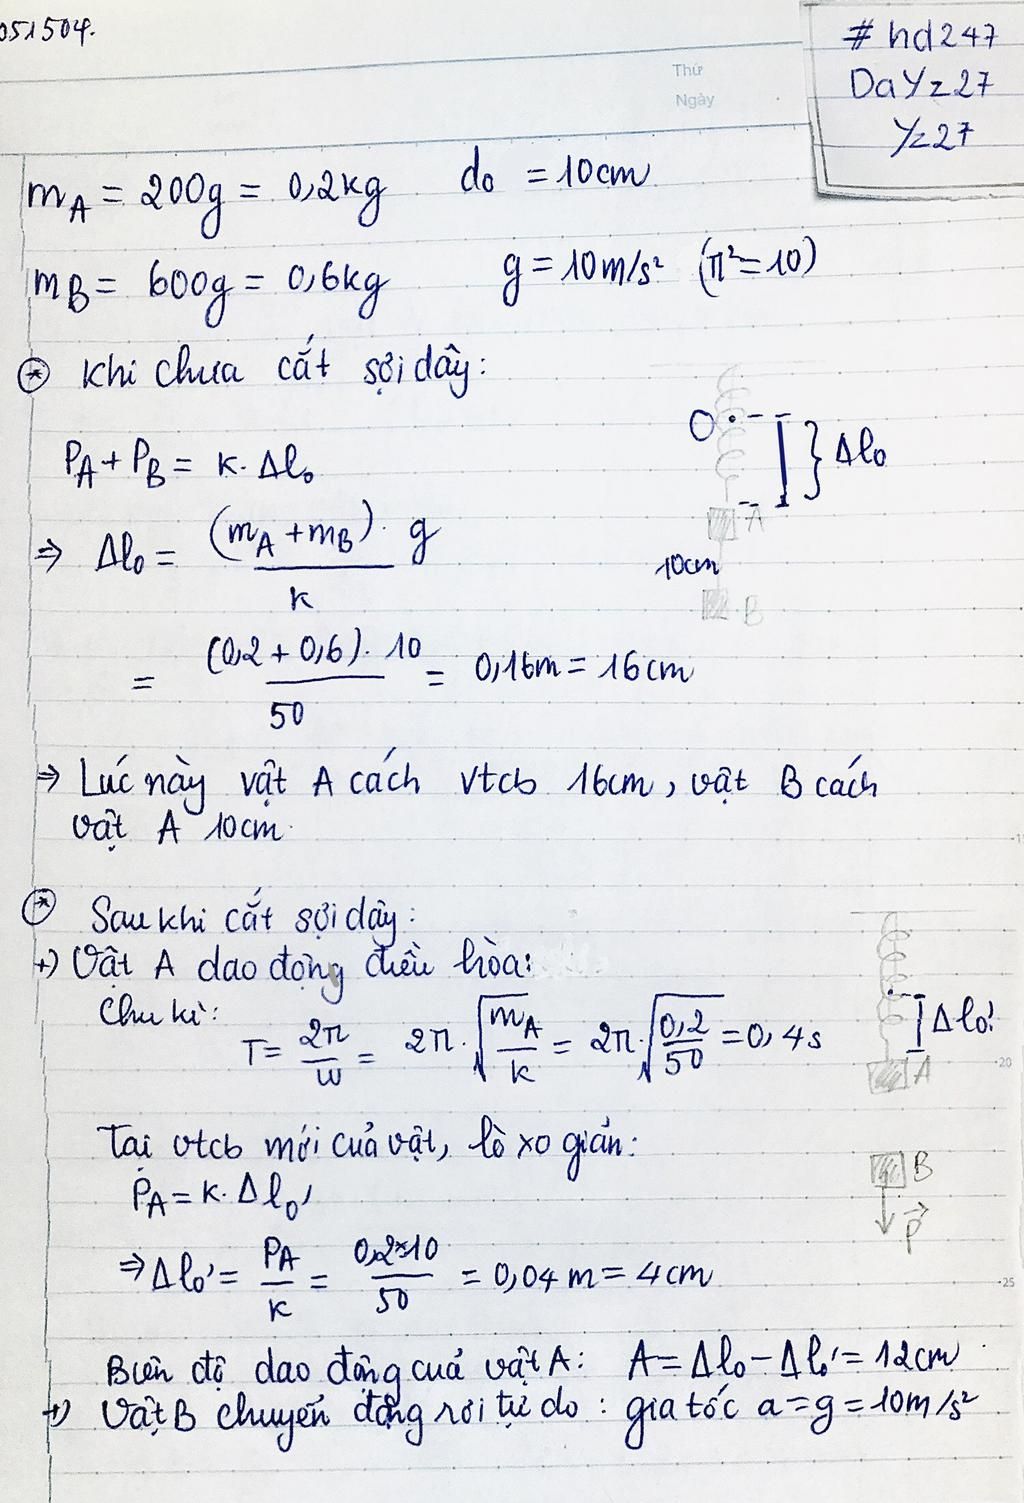 051504.
# hd247
DaYz27
Yz27
Thứ
Ngày
m_A = 200g = 0,2kg d₀ = 10cm
m_B = 600g = 0,6kg g = 10m/s² (π²=10)
* Khi chưa cắt sợi dây:
O
Δl₀
P_A + P_B = K. Δl₀
A
⇒ Δl₀ = (m_A + m_B). g / K
10cm
B
= (0,2 + 0,6). 10 / 50 = 0,16m = 16cm
⇒ Lúc này vật A cách vtcb 16cm, vật B cách
vật A 10cm.
* Sau khi cắt sợi dây:
+) Vật A dao động điều hòa:
Chu kì:
T = 2π/ω = 2π.√(m_A/K) = 2π.√(0,2/50) = 0,4s
Δl₀'
A
20
Tại vtcb mới của vật, lò xo giãn:
P_A = K. Δl₀'
B
P⃗
⇒ Δl₀' = P_A/K = 0,2×10/50 = 0,04m = 4cm
25
Biên độ dao động của vật A: A = Δl₀ - Δl₀' = 12cm
+) Vật B chuyển động rơi tự do : gia tốc a = g = 10m/s²